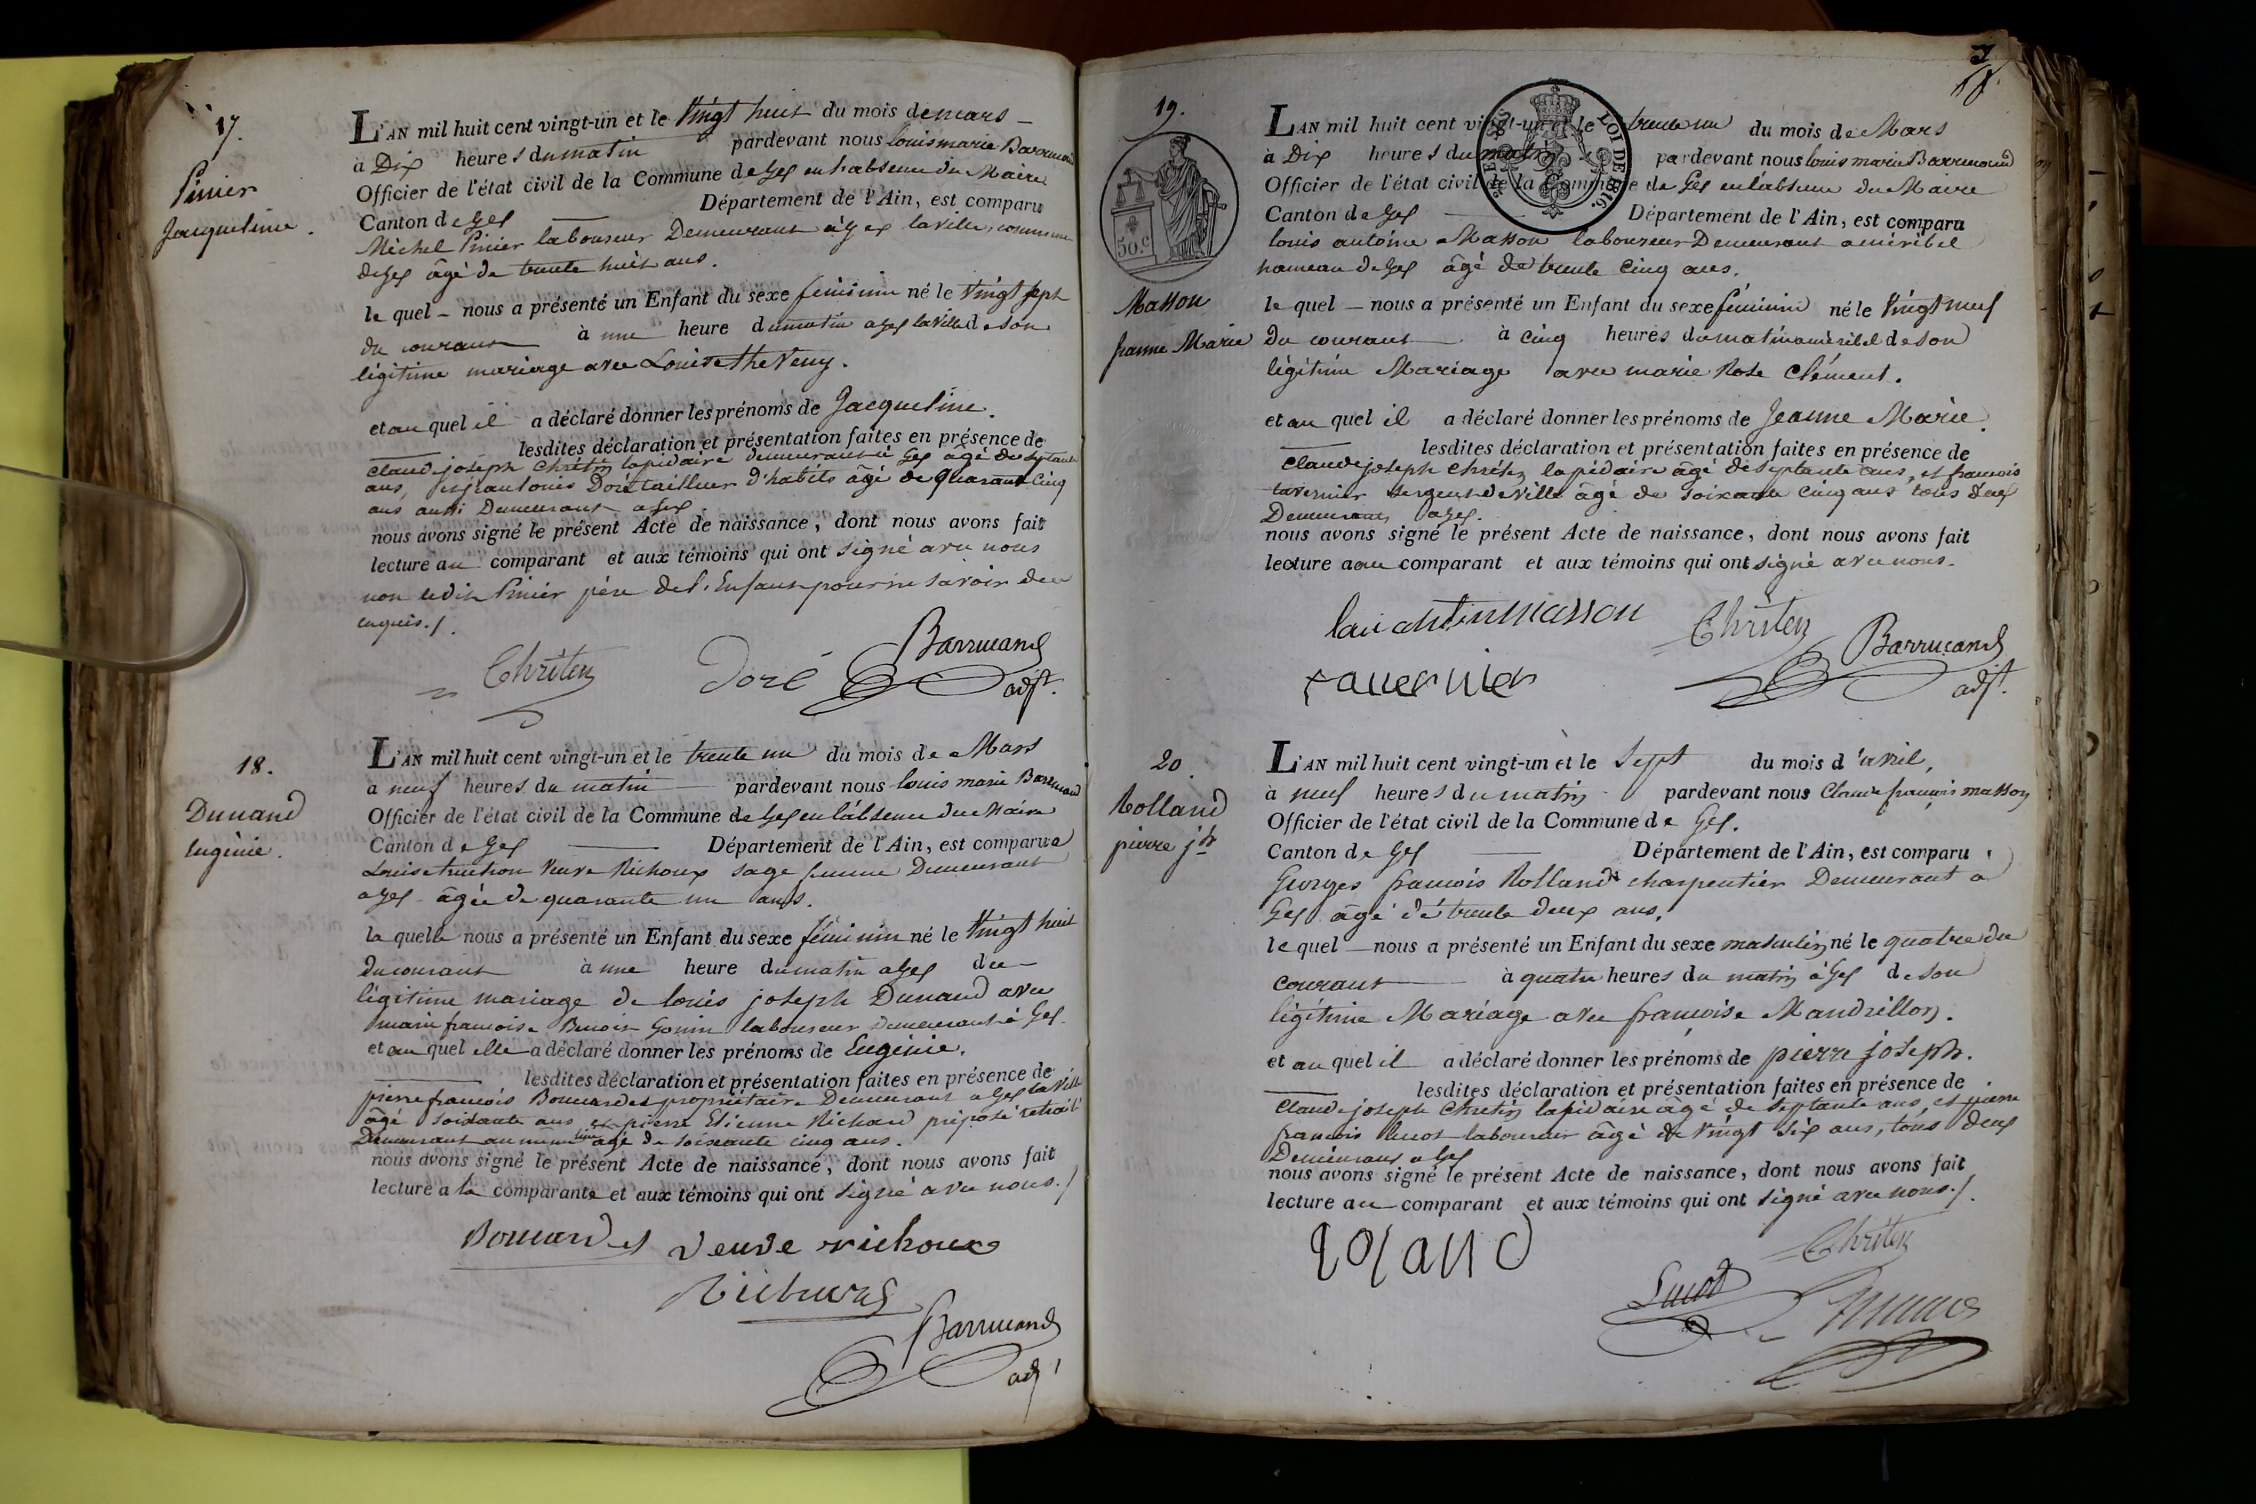 17.
Pinier
Jacqueline.
L'AN mil huit cent vingt-un et le vingt huit du mois de mars
à Dix heures du matin pardevant nous louis marie Barrucand
Officier de l'état civil de la Commune de Gex en l'absence du Maire
Canton de Gex Département de l'Ain, est comparu
Michel Pinier laboureur Demeurant à Gex la ville, commune
de Gex âgé de trente huit ans.
le quel nous a présenté un Enfant du sexe féminin né le vingt sept
du courant à une heure du matin a Gex la ville de son
légitime mariage avec Louise theveny.
et au quel il a déclaré donner les prénoms de Jacqueline.
lesdites déclaration et présentation faites en présence de
claude joseph Chrétin lapidaire demeurant à Gex âgé de septante
ans, et jean louis Doré tailleur d'habits âgé de quarante Cinq
ans aussi Demeurant a Gex.
nous avons signé le présent Acte de naissance, dont nous avons fait
lecture au comparant et aux témoins qui ont signé avec nous
non ledit Pinier père de l'Enfant pour ne savoir de ce
enquis./.
Chrîten Doré Barrucand
adjt.
18.
Dunand
Eugénie.
L'AN mil huit cent vingt-un et le trente un du mois de Mars
à neuf heures du matin pardevant nous louis marie Barrucand
Officier de l'état civil de la Commune de Gex en l'absence du Maire
Canton de Gex Département de l'Ain, est comparue
Louise truchon Veuve Richoux sage femme Demeurant
a Gex âgée de quarante un ans.
la quelle nous a présenté un Enfant du sexe féminin né le vingt huit
du courant à une heure du matin a Gex du
légitime mariage de louis joseph Dunand avec
marie francoise Benoit Gonin laboureur demeurant à Gex.
et au quel elle a déclaré donner les prénoms de Eugénie.
lesdites déclaration et présentation faites en présence de
pierre francois propriétaire Demeurant a Gex la ville
âgé soixante ans et pierre Etienne Richard préposé retraité
Demeurant au même lieu âgé de soixante cinq ans.
nous avons signé le présent Acte de naissance, dont nous avons fait
lecture a la comparante et aux témoins qui ont signé avec nous./
veuve richoux
Richard
Barrucand
adjt
19.
50.c
Masson
jeanne Marie
LOI DE 1816.
L'AN mil huit cent vingt-un et le trente un du mois de Mars
à Dix heures du matin pardevant nous louis marie Barrucand
Officier de l'état civil de la Commune de Gex en l'absence du Maire
Canton de Gex Département de l'Ain, est comparu
louis antoine Masson laboureur Demeurant a miribel
hameau de Gex âgé de trente cinq ans.
le quel nous a présenté un Enfant du sexe féminin né le vingt neuf
Du courant à cinq heures du matin a miribel de son
légitime Mariage avec marie Rose Clément.
et au quel il a déclaré donner les prénoms de Jeanne Marie.
lesdites déclaration et présentation faites en présence de
Claude joseph Chrétin lapidaire âgé de septante ans, et francois
tavernier sergent de ville âgé de soixante cinq ans tous deux
Demeurants a Gex.
nous avons signé le présent Acte de naissance, dont nous avons fait
lecture au comparant et aux témoins qui ont signé avec nous.
masson Chrîten Barrucand
tavernier adjt.
20.
Rolland
pierre jh
L'AN mil huit cent vingt-un et le sept du mois d'avril,
à neuf heures du matin pardevant nous Claude françois masson
Officier de l'état civil de la Commune de Gex.
Canton de Gex Département de l'Ain, est comparu
Georges francois Rolland charpentier Demeurant a
Gex âgé de trente deux ans.
le quel nous a présenté un Enfant du sexe masculin né le quatre du
courant à quatre heures du matin à Gex de son
légitime Mariage avec françoise Mandrillon.
et au quel il a déclaré donner les prénoms de pierre joseph.
lesdites déclaration et présentation faites en présence de
Claude joseph Chretin lapidaire âgé de septante ans, et pierre
françois lucot laboureur âgé de vingt six ans, tous deux
Demeurans a Gex
nous avons signé le présent Acte de naissance, dont nous avons fait
lecture au comparant et aux témoins qui ont signé avec nous./.
roland Chrîten
Lucot